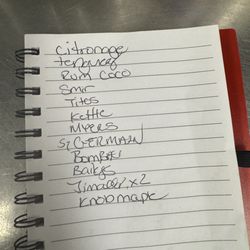 Citronage
Tanqueray
Rum Coco
Smir
Titos
Kettle
MYERS
St GERMAIN
Bombay
Baileys
Jimador x2